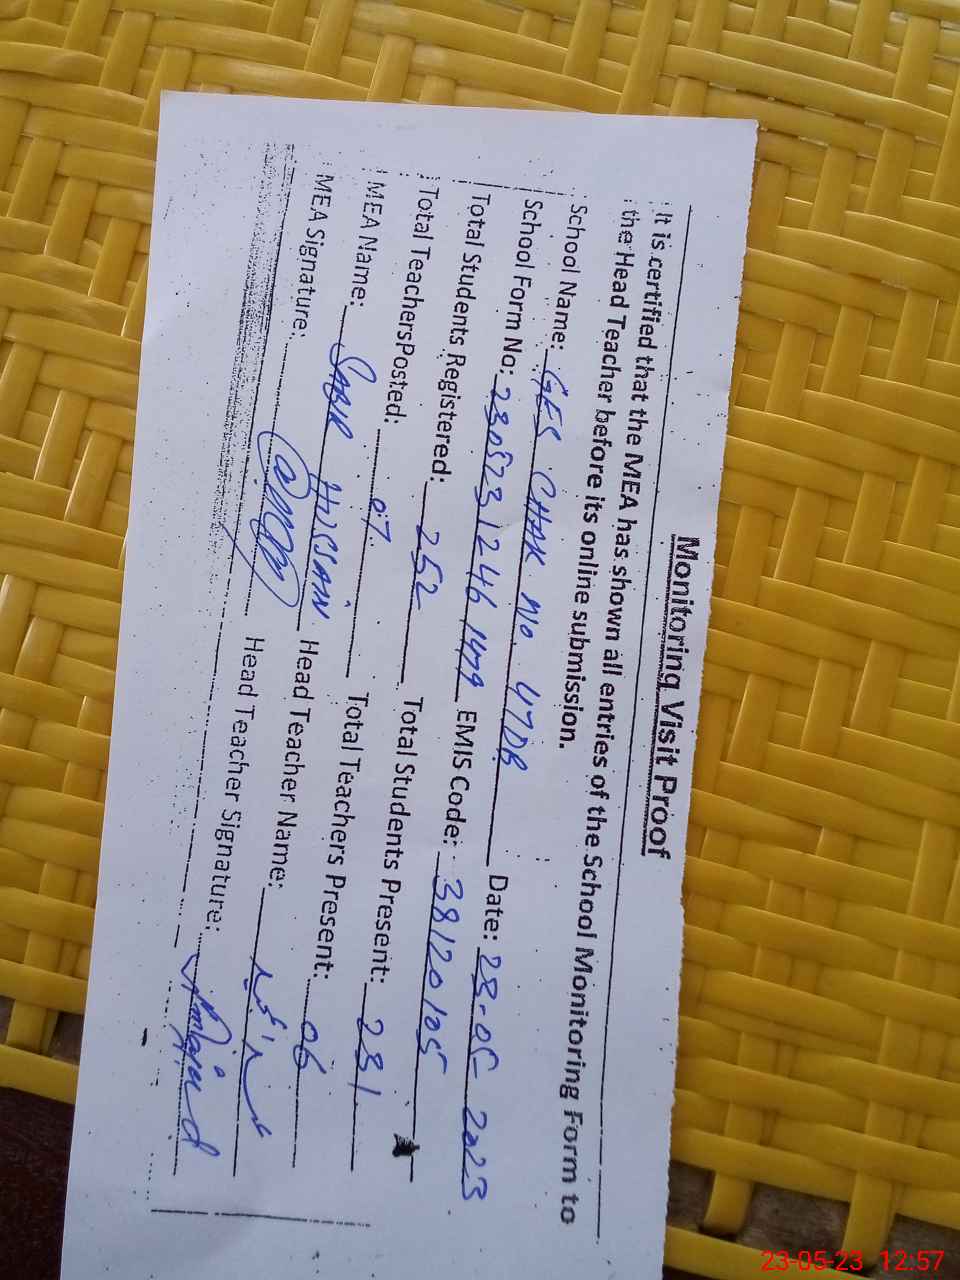 Monitoring Visit Proof
It is certified that the MEA has shown all entries of the School Monitoring Form to
the Head Teacher before its online submission.
School Name: GES CHAK No. 47DB Date: 23-05 2023
School Form No: 230523124614 EMIS Code: 38120105
Total Students Registered: 252 Total Students Present: 231
Total TeachersPosted: 07 Total Teachers Present: 06
MEA Name: SABIR HUSSAIN Head Teacher Name:
MEA Signature: Head Teacher Signature: Amjad
23-05-23 12:57